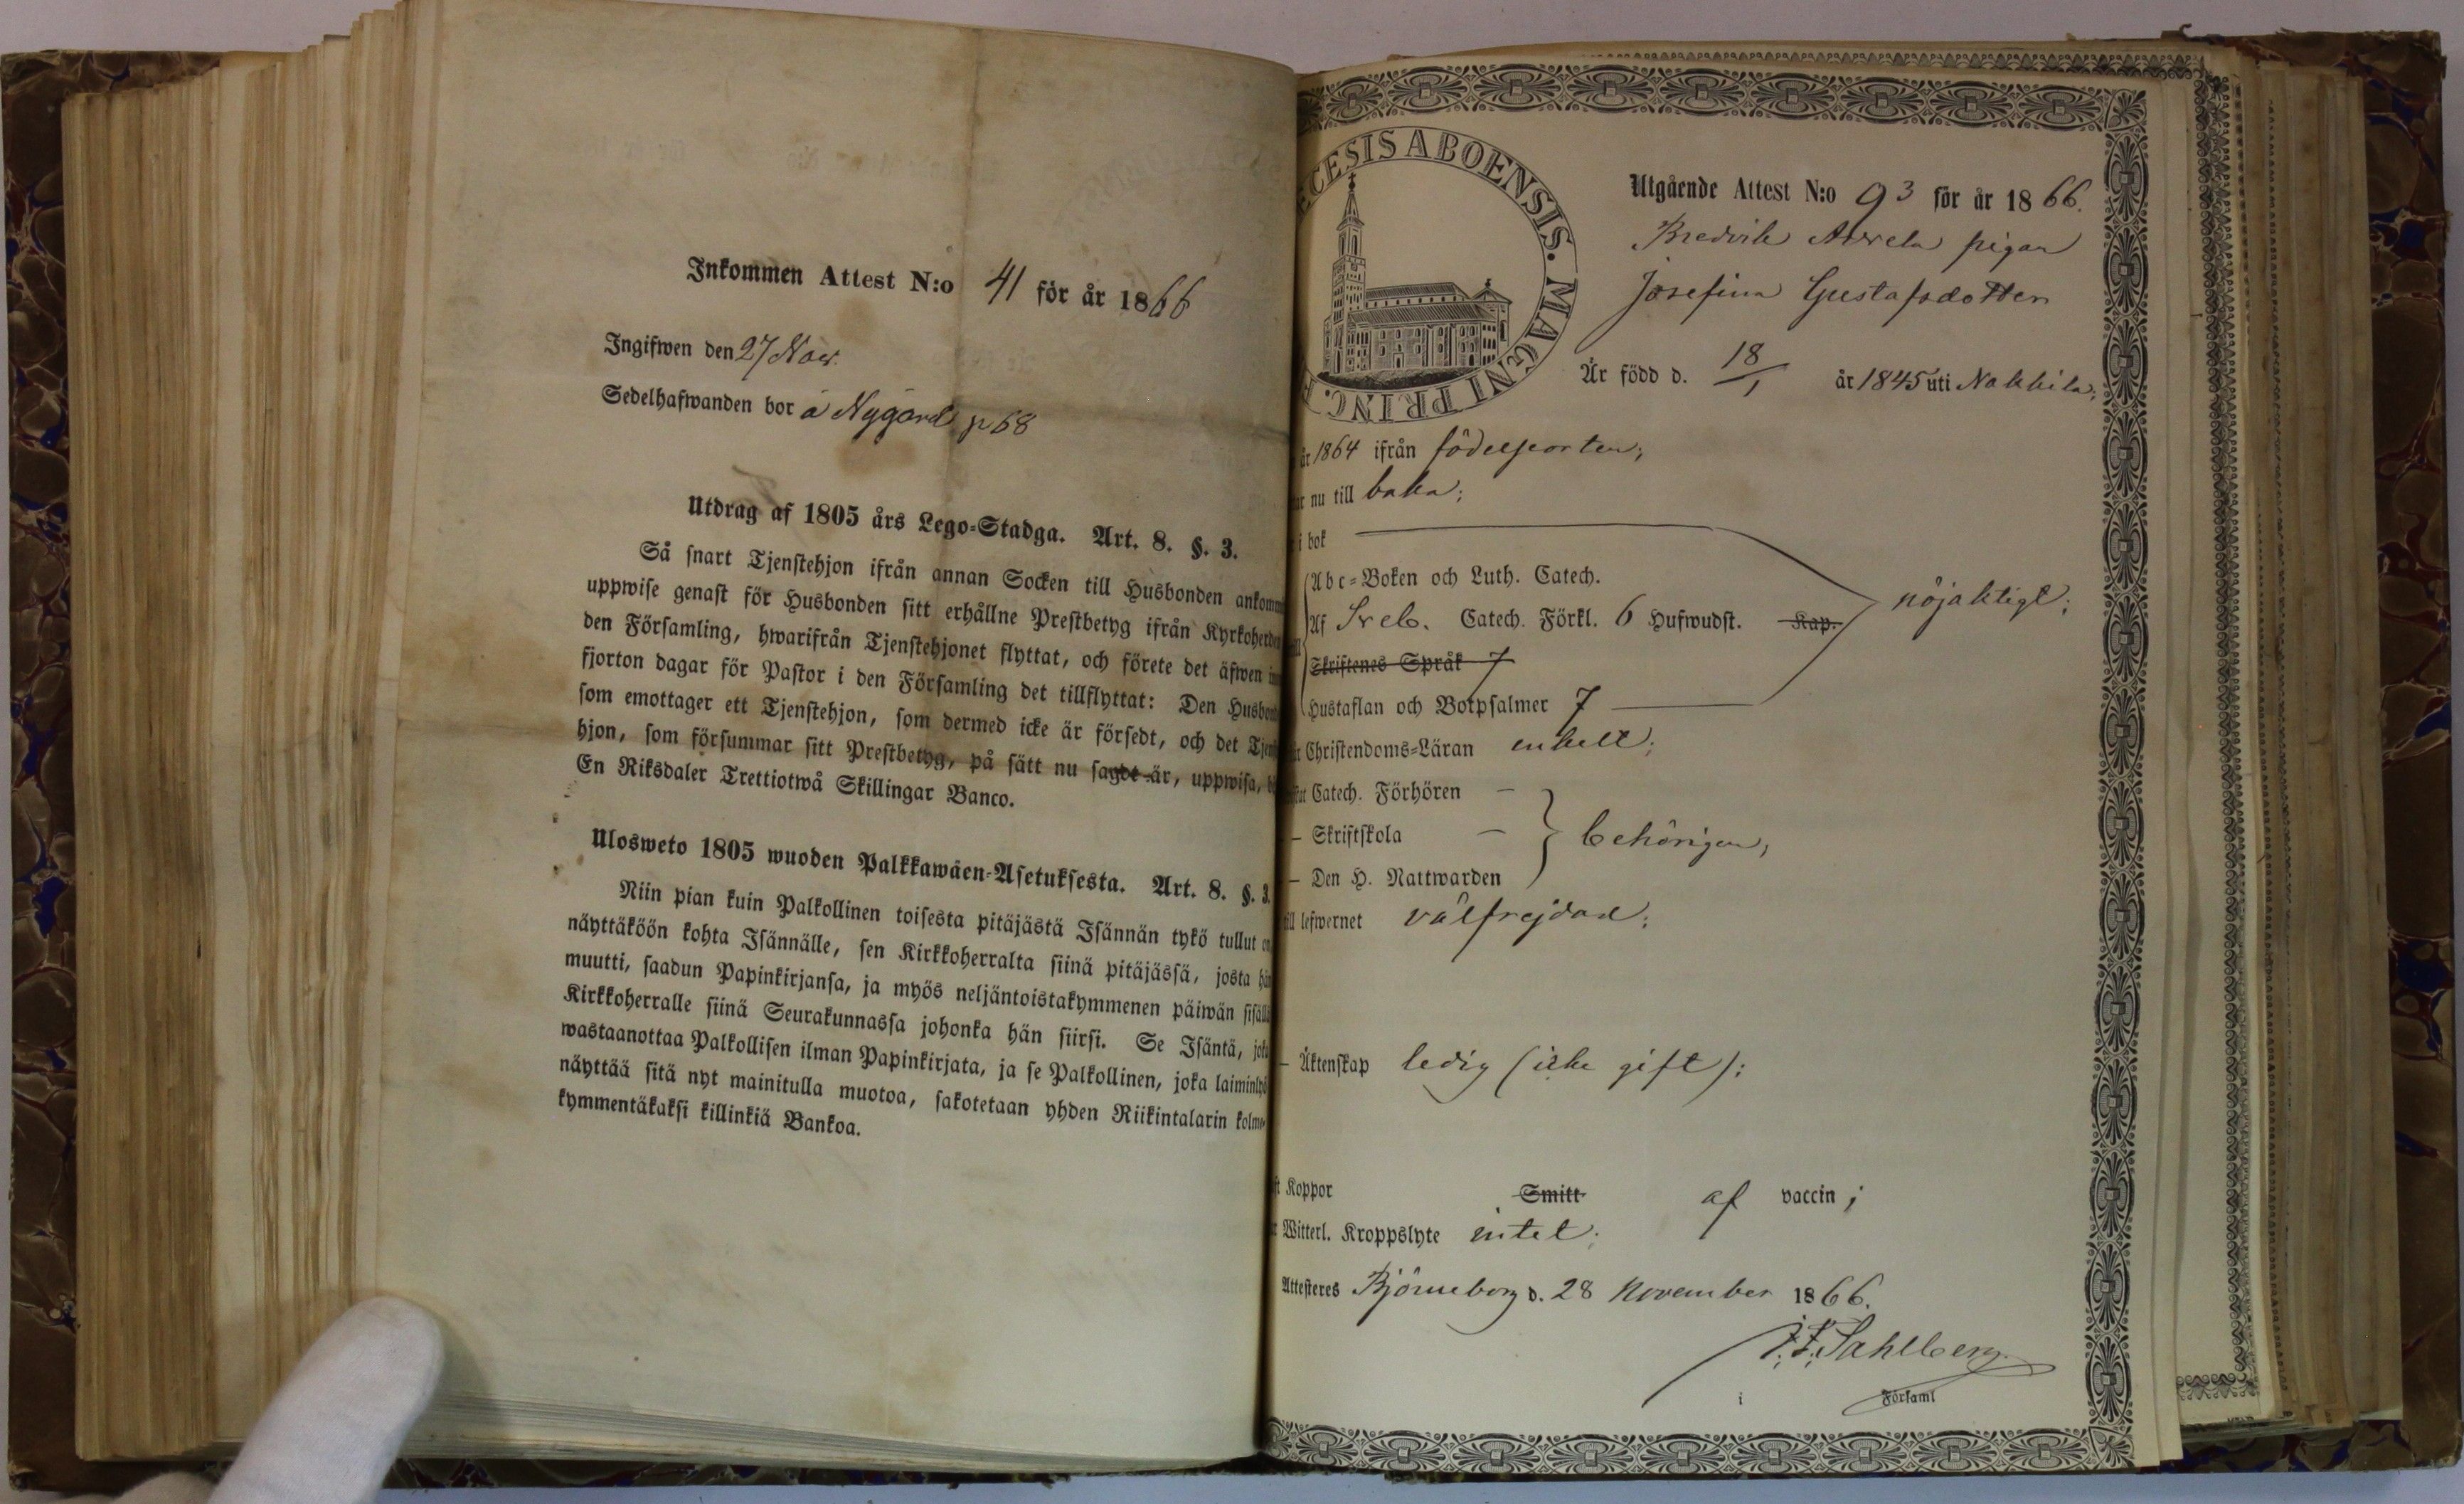 Inkommen Attest N:o 41 för år 1866
Ingifwen den 27 Nov.
Sedelhafwanden bor å Nygård p 68
Utdrag af 1805 års Lego-Stadga. Art. 8. §. 3.
Så snart Tjenstehjon ifrån annan Socken till Husbonden ankomm
uppwise genast för Husbonden sitt erhållne Prestbetyg ifrån Kyrkoherden
den Församling, hwarifrån Tjenstehjonet flyttat, och förete det äfwen in
fjorton dagar för Pastor i den Församling det tillflyttat: Den Husbond
som emottager ett Tjenstehjon, som dermed icke är försedt, och det Tjenst
hjon, som försummar sitt Prestbetyg, på sätt nu sagdt är, uppwisa, b
En Riksdaler Trettiotwå Skillingar Banco.
Ulosweto 1805 wuoden Palkkawäen-Asetuksesta. Art. 8. §. 3.
Niin pian kuin Palkollinen toisesta pitäjästä Isännän tykö tullut on
näyttäköön kohta Isännälle, sen Kirkkoherralta siinä pitäjässä, josta hän
muutti, saadun Papinkirjansa, ja myös neljäntoistakymmenen päiwän sisällä
Kirkkoherralle siinä Seurakunnassa johonka hän siirsi. Se Isäntä, joka
wastaanottaa Palkollisen ilman Papinkirjata, ja se Palkollinen, joka laiminlyö
näyttää sitä nyt mainitulla muotoa, sakotetaan yhden Riikintalarin kolme-
kymmentäkaksi killinkiä Bankoa.
ECESIS ABOENSIS. MAGNI PRINC. F
Utgående Attest N:o 93 för år 1866.
Bredvik pigan
Josefina Gustafsdotter
Är född d. 18/1 år 1845 uti Nakkila;
år 1864 ifrån födelseorten;
ar nu till baka;
i bok
Abc-Boken och Luth. Catech.
Af Sveb. Catech. Förkl. 6 Hufwudst. Kap. nöjaktigt;
Skriftenes Språk 7
Hustaflan och Botpsalmer 7
Christendoms-Läran enkelt;
Catech. Förhören —
— Skriftskola — behörigen,
— Den H. Nattwarden
till lefwernet välfrejdad;
— Äktenskap ledig (icke gift);
Koppor Smitt af vaccin;
Witterl. Kroppslyte intet;
Attesteres Björneborg d. 28 November 1866.
J. F. Sahlberg.
i Församl